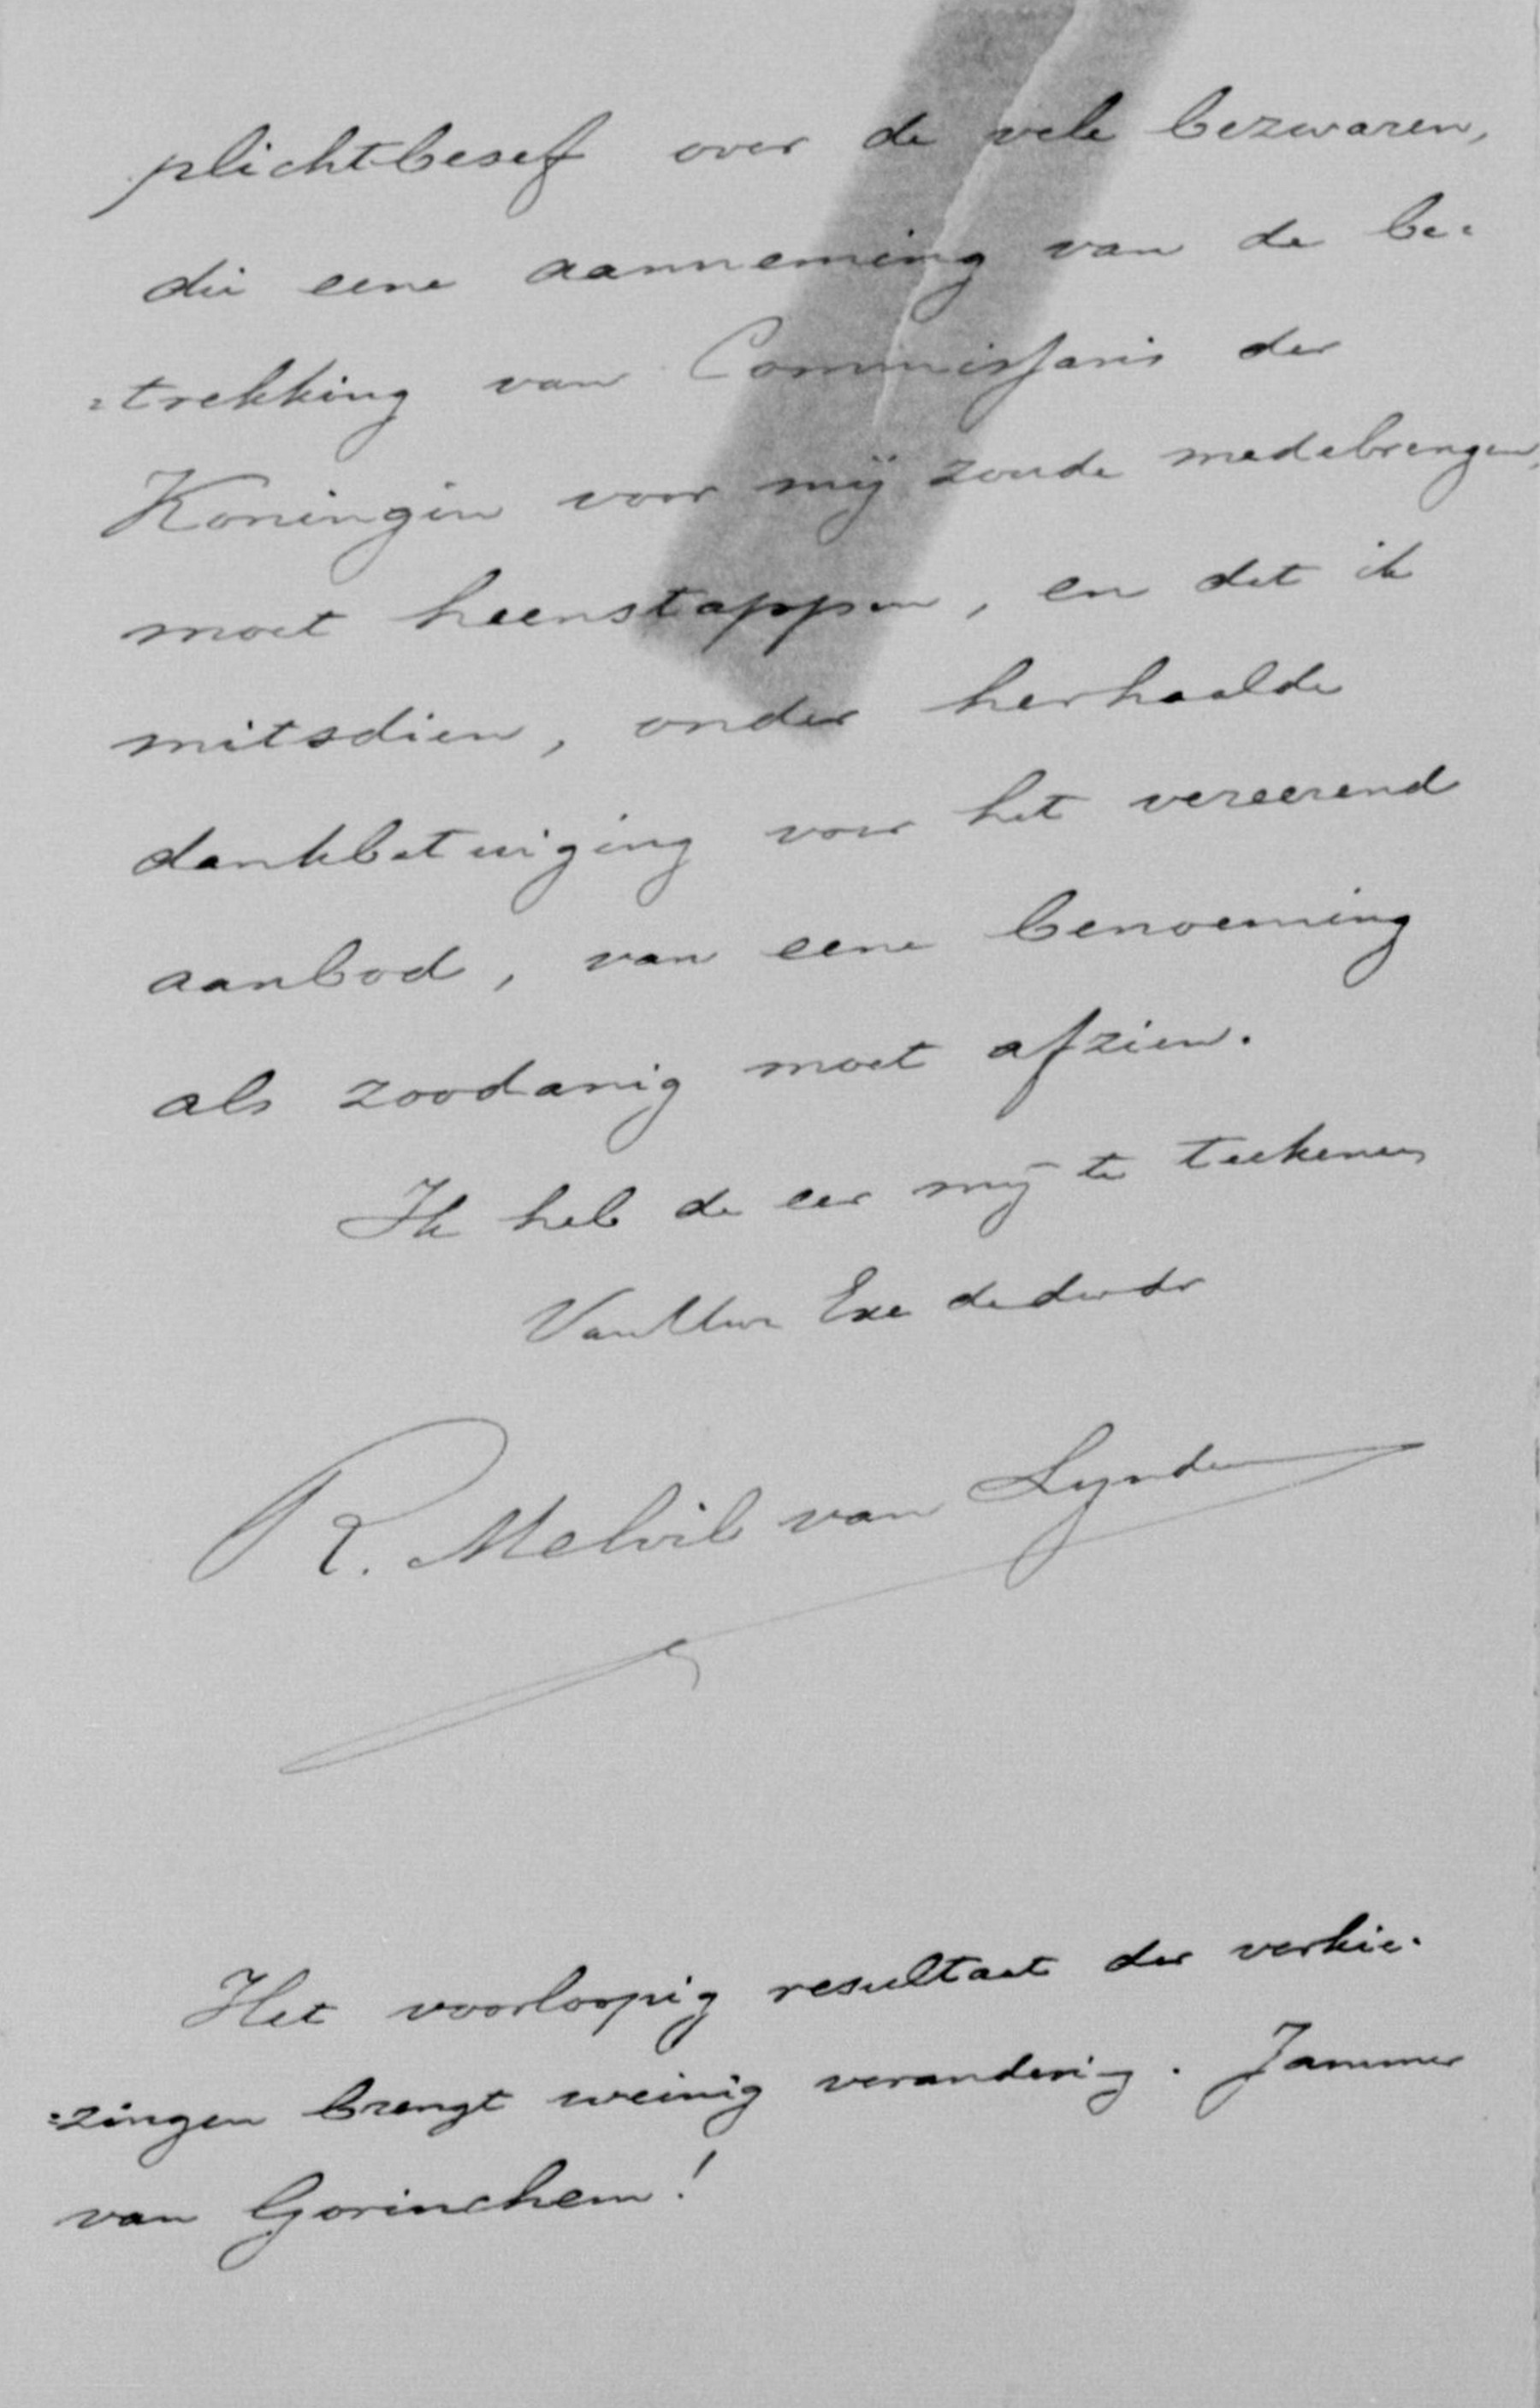 plichtbesef over de vele bezwaren,
die eene aanneming van de be=
=trekking van Commissaris der
Koningin voor mij zoude medebrengen,
moet heenstappen, en dat ik
mitsdien, onder herhaalde
dankbetuiging voor het vereerend
aanbod, van eene benoeming
als zoodanig moet afzien.
Ik heb de eer mij te teekenen
Van Uwe Exe de dw dr
R. Melvil van Lynden
Het voorloopig resultaat der verkie=
=zingen brengt weinig verandering. Jammer
van Gorinchem!